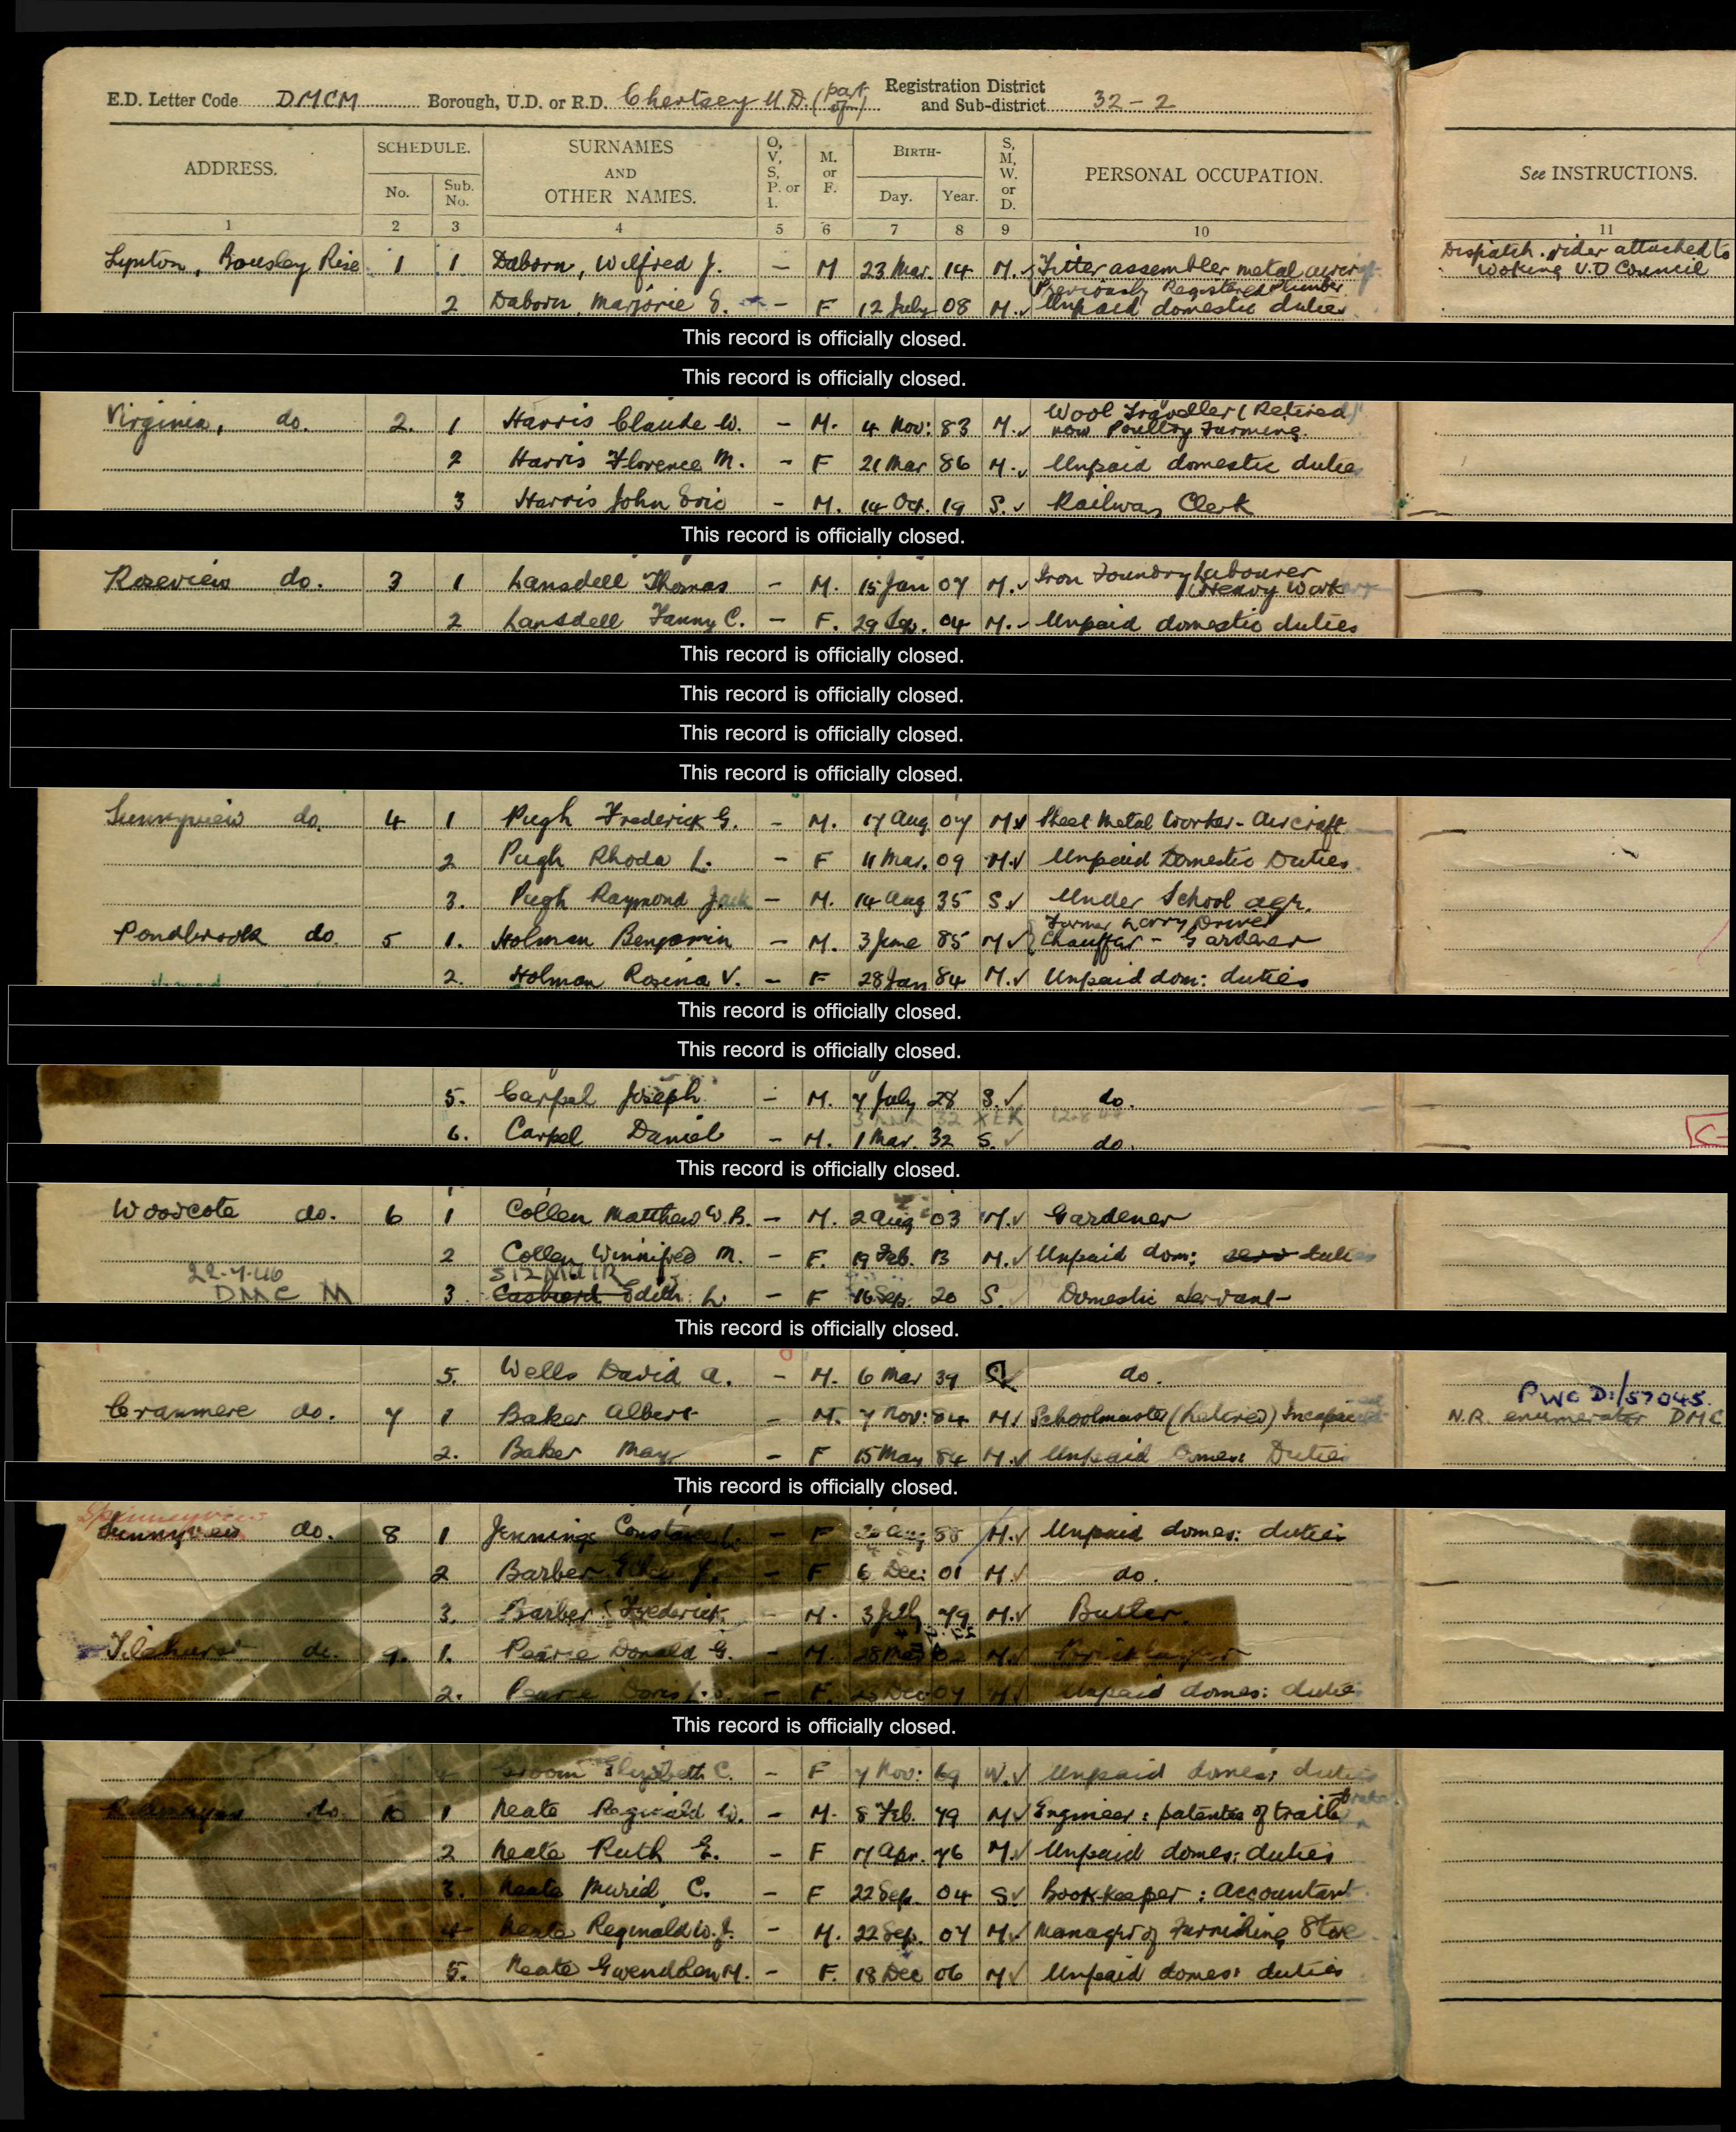 E.D. Letter Code DMCM Borough, U.D. or R.D. Chertsey U.D. (part of) Registration District and Sub-district 32-2
ADDRESS. SCHEDULE. No. Sub. No. SURNAMES AND OTHER NAMES. O, V, S, P. or I. M. or F. BIRTH- Day. Year. S, M, W. or D. PERSONAL OCCUPATION. See INSTRUCTIONS.
1 2 3 4 5 6 7 8 9 10 11
Lynton, Bousley Rise 1 1 Daborn, Wilfred J. - M 23 Mar. 14 M. Fitter assembler metal aircraft Dispatch rider attached to Woking U.D Council
Previously Registered Plumber
2 Daborn, Marjorie E. - F 12 July 08 M. Unpaid domestic duties
This record is officially closed.
This record is officially closed.
Virginia, do. 2. 1 Harris Claude W. - M. 4 Nov: 83 M. Wool Traveller (Retired) now Poultry Farming.
2 Harris Florence M. - F 21 Mar 86 M. Unpaid domestic duties
3 Harris John Eric - M. 14 Oct. 19 S. Railway Clerk
This record is officially closed.
Roseview do. 3 1 Lansdell Thomas - M. 15 Jan 07 M. Iron Foundry Labourer (Heavy Work
2 Lansdell Fanny C. - F. 29 Sep. 04 M. Unpaid domestic duties
This record is officially closed.
This record is officially closed.
This record is officially closed.
This record is officially closed.
Sunnyview do. 4 1 Pugh Frederick G. - M. 17 Aug 07 M Sheet Metal Worker - Aircraft
2 Pugh Rhoda L. - F 11 Mar. 09 M. Unpaid Domestic Duties
3. Pugh Raymond Jack - M. 14 Aug 35 S Under School age.
Pondbrook do. 5 1. Holman Benjamin - M. 3 June 85 M Former Lorry Driver Chauffer - Gardener
2. Holman Rosina V. - F 28 Jan 84 M. Unpaid dom: duties
This record is officially closed.
This record is officially closed.
5. Carpel Joseph - M. 7 July 28 S. do.
6. Carpel Daniel - M. 1 Mar. 32 S. do.
This record is officially closed.
Woodcote do. 6 1 Collen Matthew W.B. - M. 2 Aug 03 M. Gardener
2 Collen Winnifred M. - F. 19 Feb. 13 M. Unpaid dom: duties
22.7.40 DMC M SIZMUR
3. Edith L. - F 16 Sep. 20 S. Domestic servant
This record is officially closed.
5. Wells David A. - M. 6 Mar 39 S do. PWC D:/57045
Cranmere do. 7 1 Baker Albert - M. 7 Nov: 84 M. Schoolmaster (Retired) N.R. enumerator DMC
2. Baker May - F 15 May 84 M. Unpaid Domes: Duties
This record is officially closed.
Spinneyview
Sunnyview do. 8 1 Jennings Constance L. - F Aug 88 M. Unpaid domes: duties
2 Barber J. - F 6 Dec: 01 M. do.
3. Barber Frederick - M. 3 79 M. Butler.
Tilehurst do. 9. 1. Pearce Donald G. - M. 28 M. Bricklayer
2. Pearce Doris - F. 23 Dec 07 M. Unpaid domes: duties
This record is officially closed.
Groom Elizabeth C. - F 7 Nov: 69 W. Unpaid domes: duties
do. 10 1 Neate Reginald W. - M. 8 Feb. 79 M. Engineer: patentee of trailer brakes
2 Neate Ruth E. - F 17 Apr. 76 M. Unpaid domes: duties
3. Neate Muriel C. - F 22 Sep. 04 S. Book-keeper: Accountant
4 Neate Reginald W.J. - M. 22 Sep. 07 M. Manager of Furnishing Store
5. Neate Gwendolen M. - F. 18 Dec 06 M. Unpaid domes: duties